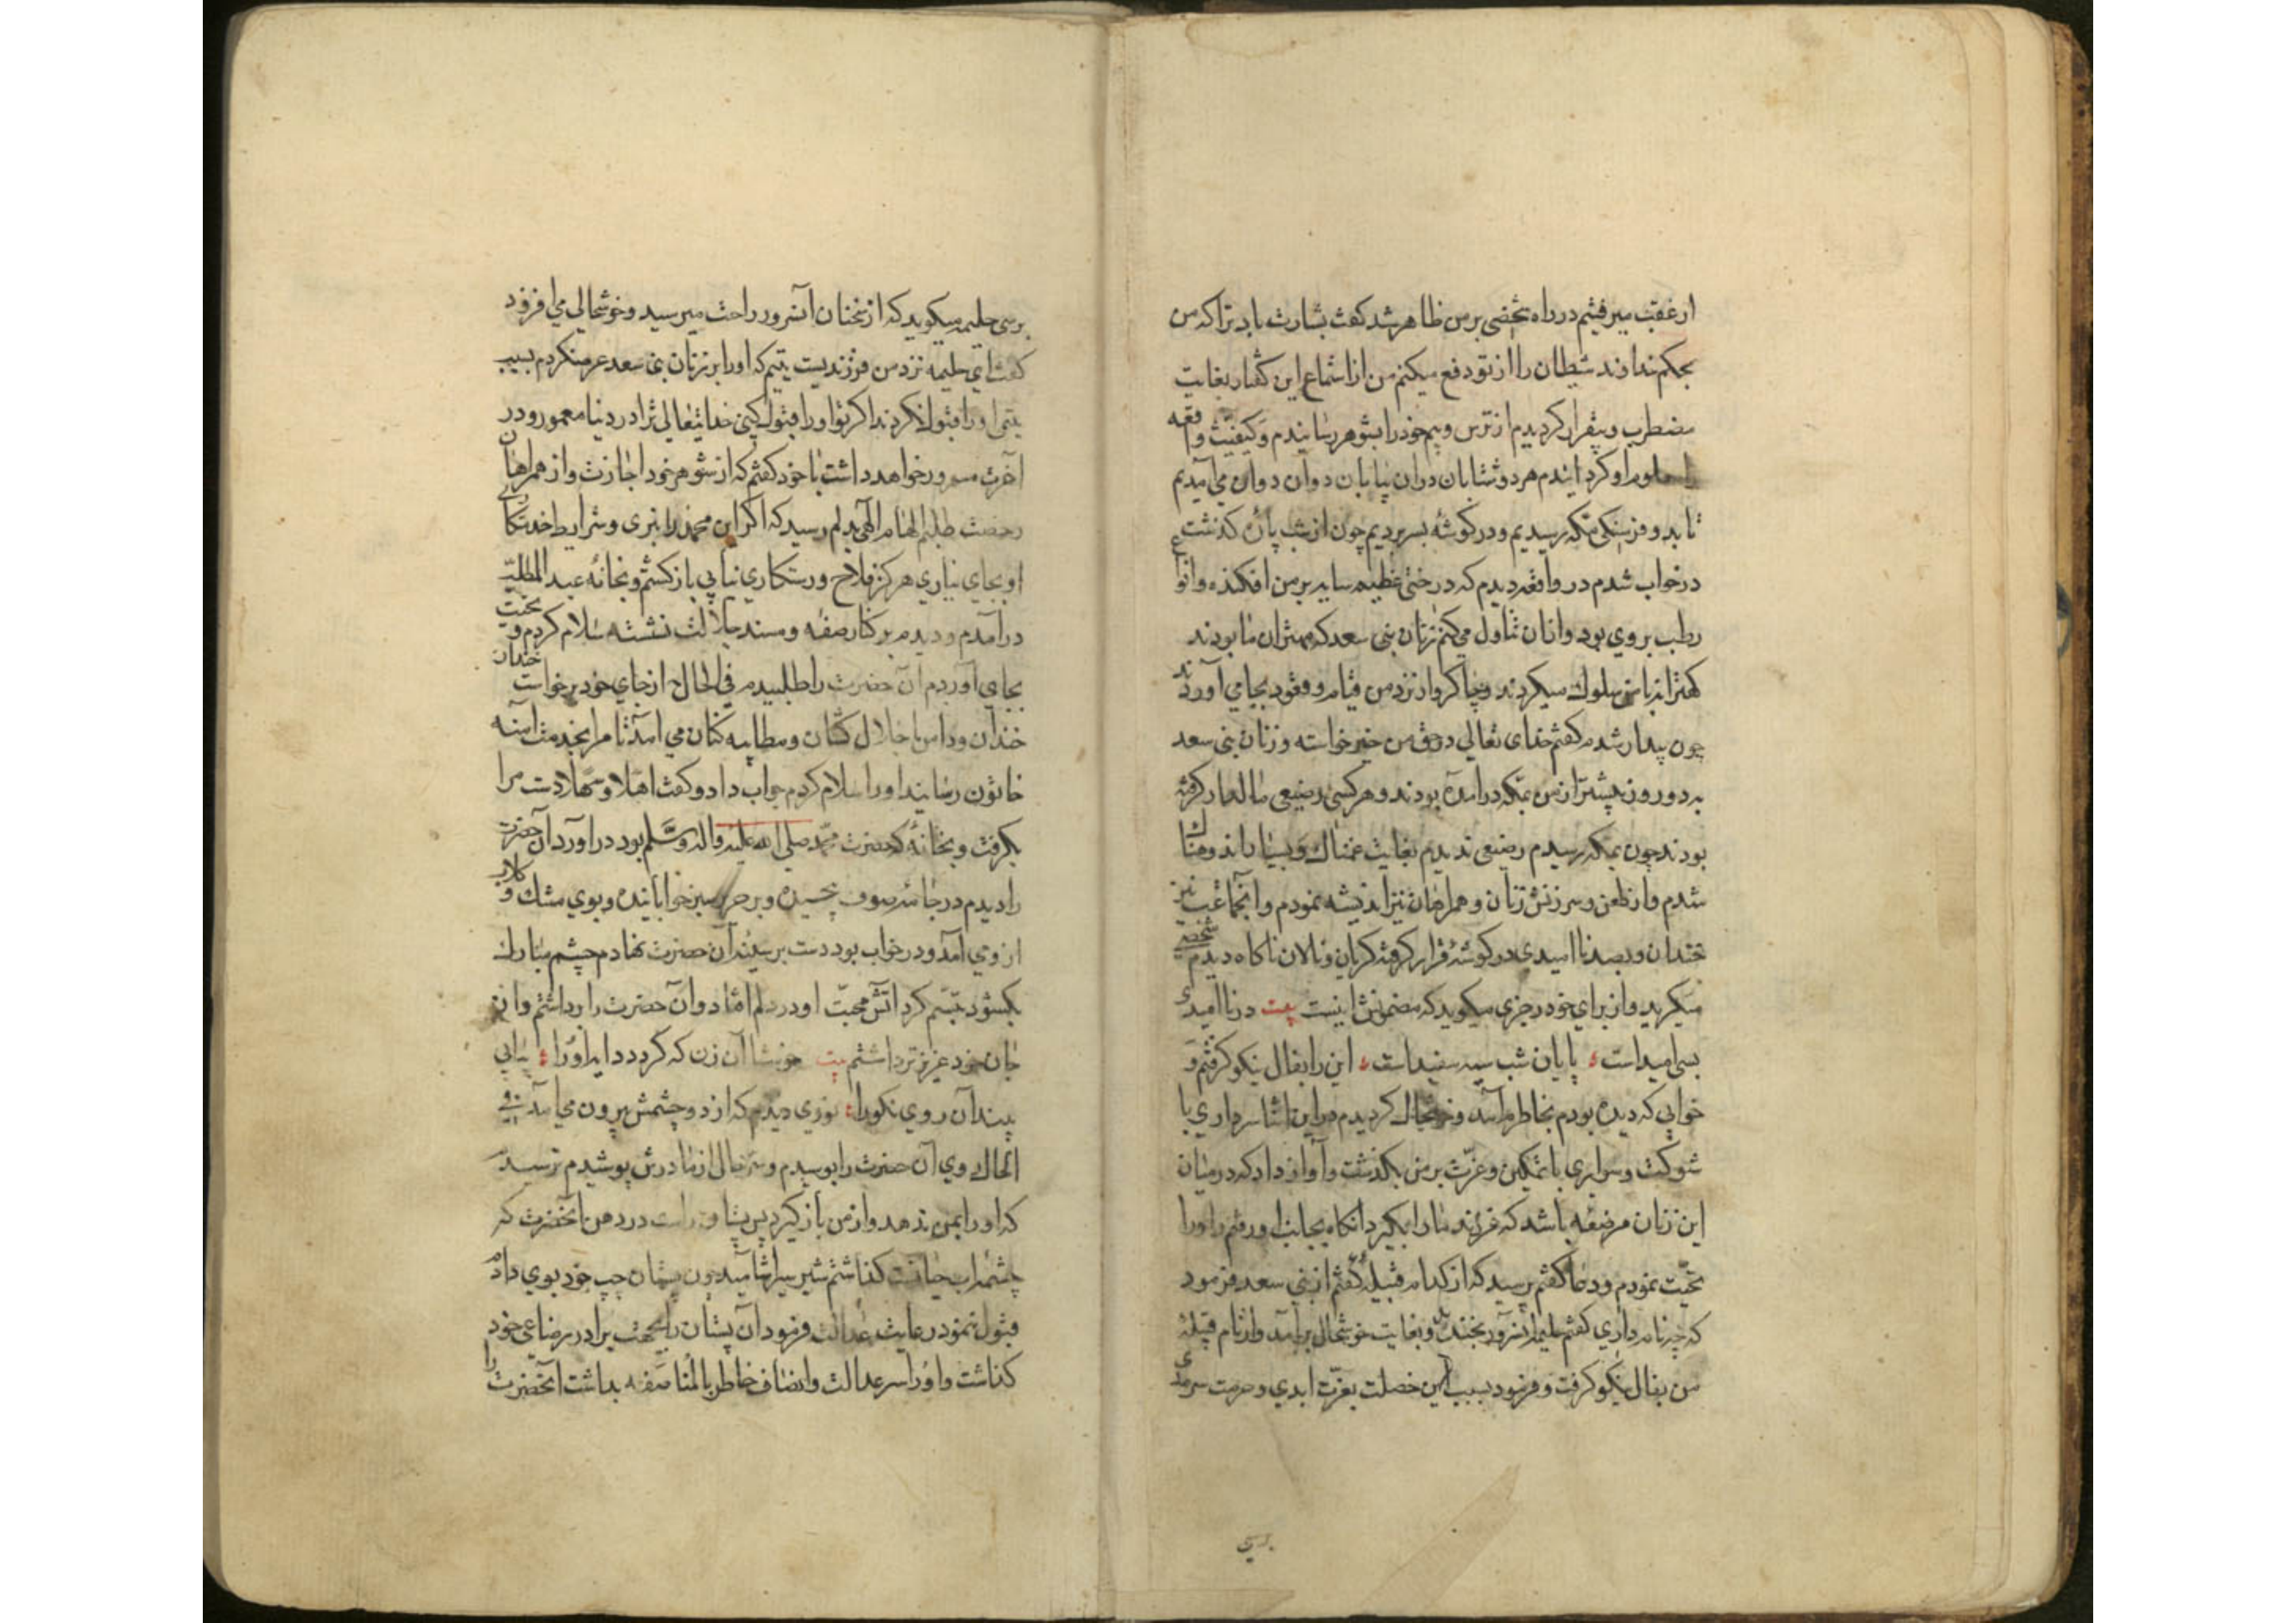 از عقب میرفتم در راه شخصی بر من ظاهر شد کفت بشارت باد ترا که من
بحکم خداوند شیطان را از تو دفع میکنم من از استماع این کفتار بغایت
مضطرب و بیقرار کردیدم از ترس و بیم خود را بشوهر رسانیدم و کیفیّت واقعه
را او کردانیدم هر دو شتابان دران بیابان دوان دوان می آمدیم
تا بدو فرسنکی مکّه رسیدیم و در کوشهٔ بسر بردیم چون از شب پارهٔ کذشت
در خواب شدم در واقعه دیدم که درختی عظیم سایه بر من افکنده و انواع
رطب بر وی بود و ازان تناول می کنم زنان بنی سعد که مهتران ما بودند
کهترانه با من سلوک میکردند و چاکروار نزد من قیام و قعود بجا می آوردند
چون بیدار شدم کفتم خدای تعالی در حق من خیر خواسته و زنان بنی سعد
به دو روز پیشتر از من بمکّه درآمده بودند و هر کس رضیعی مالدار کرفته
بودند چون بمکه رسیدم رضیعی ندیدم بغایت غمناک و بسیار اندوهناک
شدم و از طعن و سرزنش زنان و همراهان نیز اندیشه نمودم و انجماعت نیز
خندان و بصد ناامیدی در کوشهٔ قرار کرفته کریان و نالان ناکاه دیدم شخصی
میکرید و از برای خود رجزی میکوید که مضمونش اینست بیت در ناامیدی
بسی امیداست پایان شب سیه سفیداست این را بفال نیکو کرفتم و
خوابی که دیده بودم بخاطرم آمد و خوشحال کردیدم در این اثنا سرداری با
شوکت و سروری با تمکین و عزّت بر من بکذشت و آواز داد که در میان
این زنان مرضعه باشد که فرزند ما را بکیرد انکاه بجانب او رفتم و او را
تحیّت نمودم و دعا کفتم پرسید که از کدام قبیلهٔ کفتم از بنی سعد فرمود
که چه نام داری کفتم حلیمه انسرور بخندید و بغایت خوشحال برآمد و از نام قبیلهٔ
من بفال نیکو کرفت و فرمود بسبب این خصلت بعزّت ابدی و حرمت سرمدی
برسی
برسی حلیمه میکوید که از سخنان آنسرور راحت میرسید و خوشحالی می افزود
کفت ای حلیمه نزد من فرزندیست یتیم که او را بر زنان بنی سعد عرض میکردم بسبب
یتیمی او را قبول نکردند اکر تو او را قبول کنی خدایتعالی ترا در دنیا معمور و در
آخرت مسرور خواهد داشت با خود کفتم که از شوهر خود اجازت و از همراهان
رخصت طلبم الهام الهی بدلم رسید که اکر این محمد را نبری و شرایط خدمتکاری
او بجای نیاری هرکز فلاح و رستکاری نیابی باز کشتم و بخانهٔ عبد المطلب
درآمدم و دیدم بر کنار صفه و مسند جلالت نشسته سلام کردم و تحیت
بجای آوردم آن حضرت را طلبیدم فی الحال از جای خود برخواست خندان
خندان و دامن اجلال کشان و مطایبه کنان می آمد تا مرا بخدمت آمنه
خاتون رسانید او را سلام کردم جواب داد و کفت اهلا و سهلا دست مرا
بکرفت و بخانهٔ که حضرت محمد صلی الله علیه واله وسلم بود درآورد آن حضرت
را دیدم در جامهٔ صوف پیچیده و بر حریر سبز خوابانیده و بوی مشک و کلاب
از وی آمد و در خواب بود دست بر سینهٔ آن حضرت نهادم چشم مبارک
بکشود تبسّم کرد آتش محبّت او در دلم افتاد و آن حضرت را برداشتم و از
جان خود عزیزتر داشتم بیت خوشا آن زن که کردد دایه او را بیابی
بیند آن روی نکو را نوری دیدم که از دو چشمش بیرون می آمد فی
الحال روی آن حضرت را بوسیدم و خوشحالی از مادرش پوشیدم ترسیدم
که او را بمن ندهد و از من باز کیرد پس پستان راست در دهن آنحضرت که
چشمه آب حیاتست کذاشتم شیر بیاشامید چون پستان چپ خود بوی دادم
قبول ننمود رعایت عدالت فرمود آن پستان را بجهت برادر رضاعی خود
کذاشت و او را سر عدالت و انصاف خاطر بالمناصفه بداشت آنحضرت را